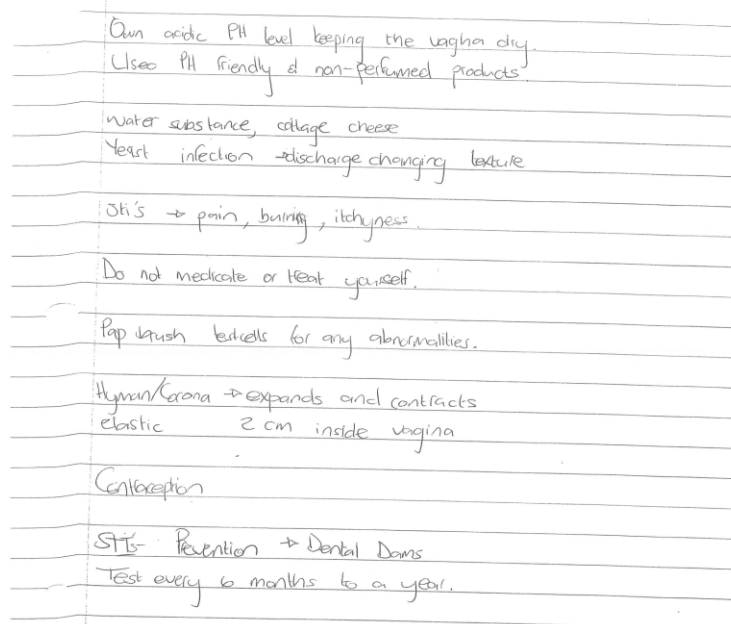 Own acidic PH level keeping the vagina dry.
Use PH friendly & non-perfumed products.
Water substance, cottage cheese
Yeast infection → discharge changing texture
Sti's → pain, burning, itchyness.
Do not medicate or treat yourself.
Pap brush test cells for any abnormalities.
Hyman/Corona → expands and contracts
elastic 2 cm inside vagina
Contraception
STIs- Prevention → Dental Dams
Test every 6 months to a year.